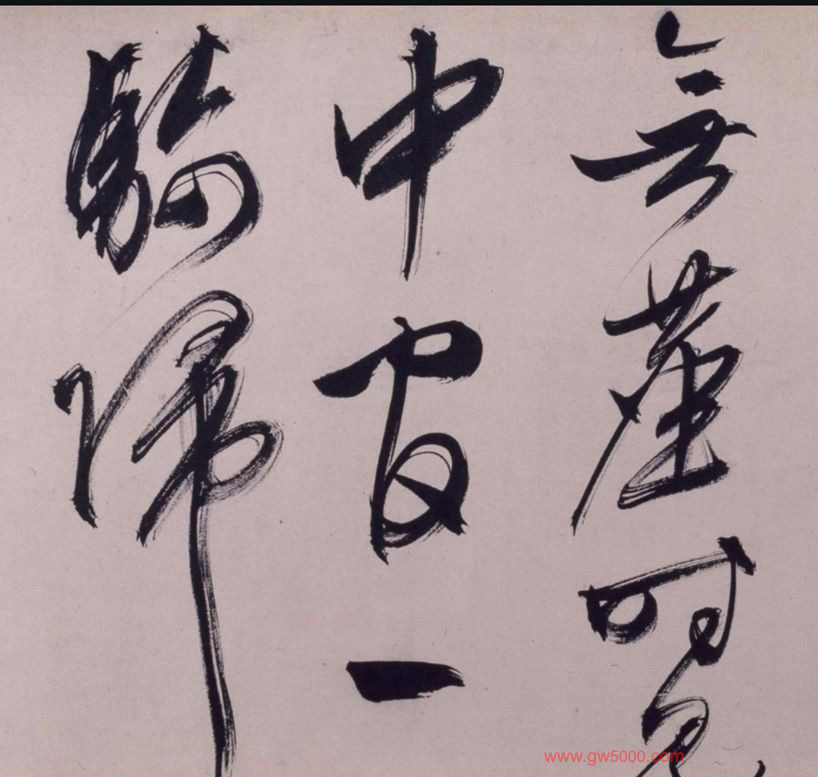 無塵時見
中官一
騎歸
www.gw5000.com